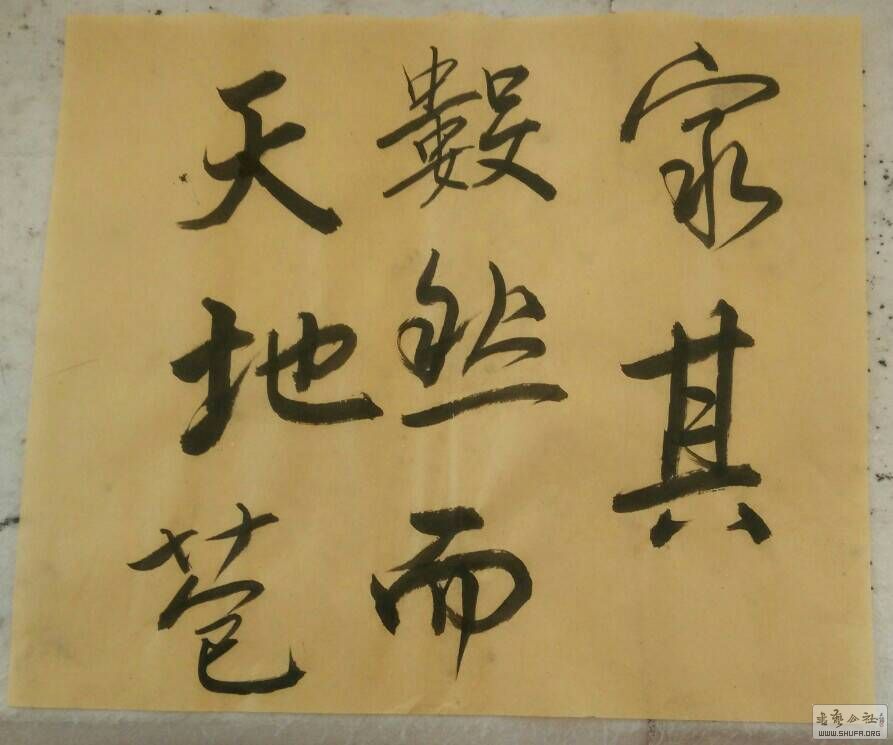 家其
數然而
天地苞
書藝公社
WWW.SHUFA.ORG